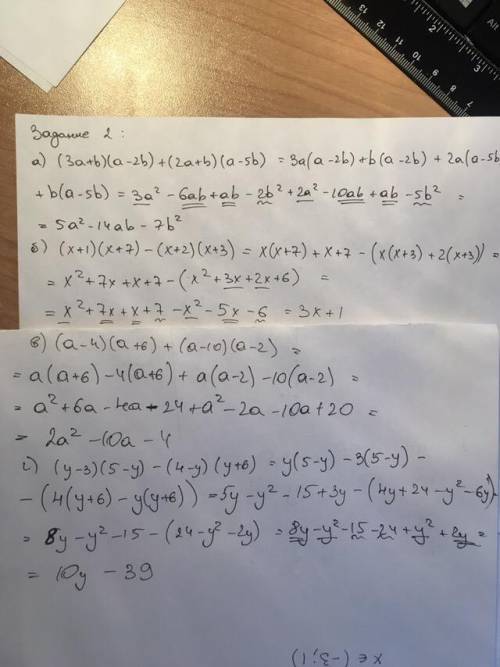 Задание 2:
а) (3a+b)(a-2b)+(2a+b)(a-5b) = 3a(a-2b)+b(a-2b)+2a(a-5b
+b(a-5b) = 3a²-6ab+ab-2b²+2a²-10ab+ab-5b² =
= 5a²-14ab-7b²
б) (x+1)(x+7)-(x+2)(x+3) = x(x+7)+x+7-(x(x+3)+2(x+3)) =
= x²+7x+x+7-(x²+3x+2x+6) =
= x²+7x+x+7-x²-5x-6 = 3x+1
в) (a-4)(a+6)+(a-10)(a-2) =
= a(a+6)-4(a+6)+a(a-2)-10(a-2) =
= a²+6a-4a-24+a²-2a-10a+20 =
= 2a²-10a-4
г) (y-3)(5-y)-(4-y)(y+6) = y(5-y)-3(5-y)-
-(4(y+6)-y(y+6)) = 5y-y²-15+3y-(4y+24-y²-6y)
= 8y-y²-15-(24-y²-2y) = 8y-y²-15-24+y²+2y =
= 10y-39
x∈(-3;1)
2
3